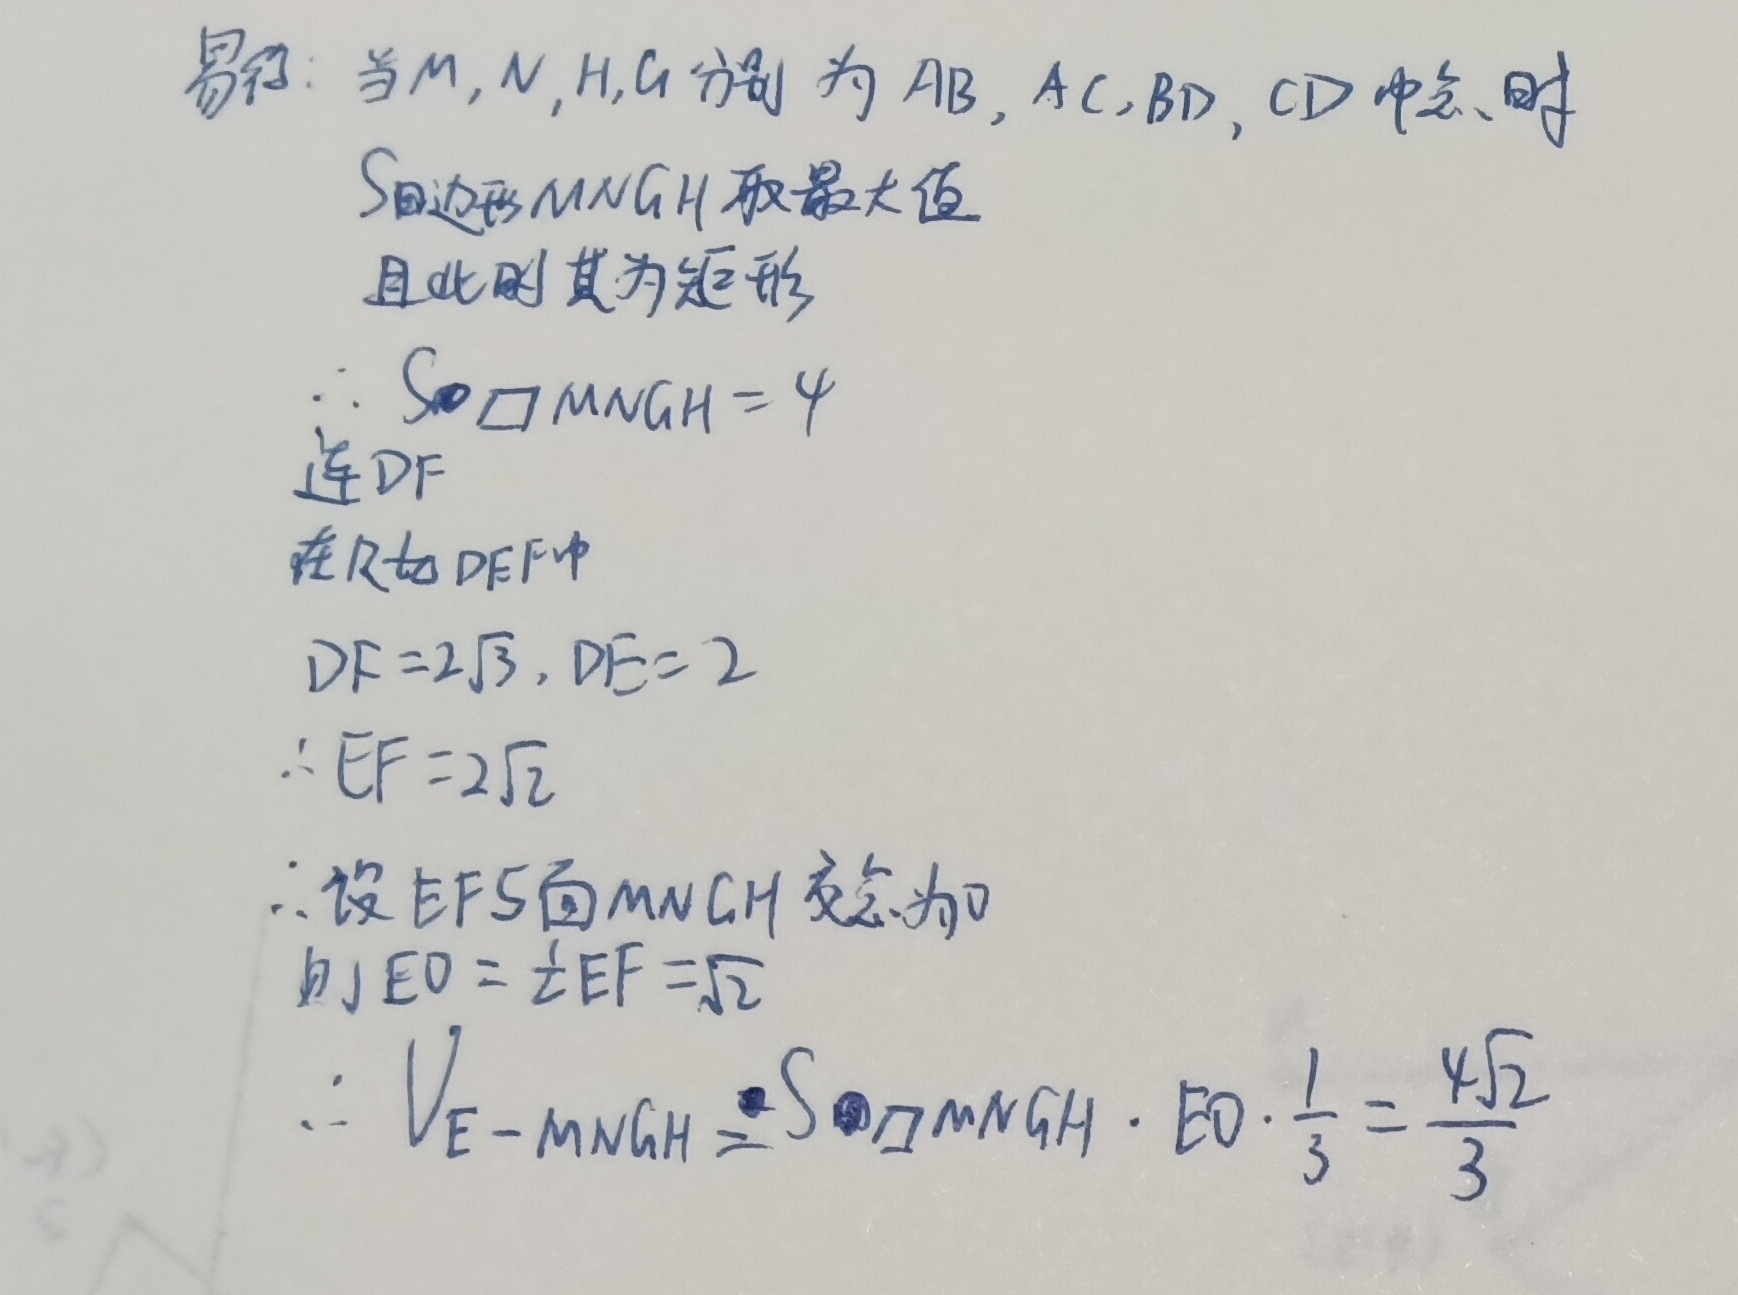 易得：当M,N,H,G分别为AB,AC,BD,CD中点、时
S四边形MNGH取最大值
且此时其为矩形
∴ S▱MNGH=4
连DF
在Rt△DEF中
DF=2√3，DE=2
∴EF=2√2
∴设EF与面MNGH交点为O
则EO=½EF=√2
∴ V_E-MNGH = S▱MNGH · EO · 1/3 = 4√2/3